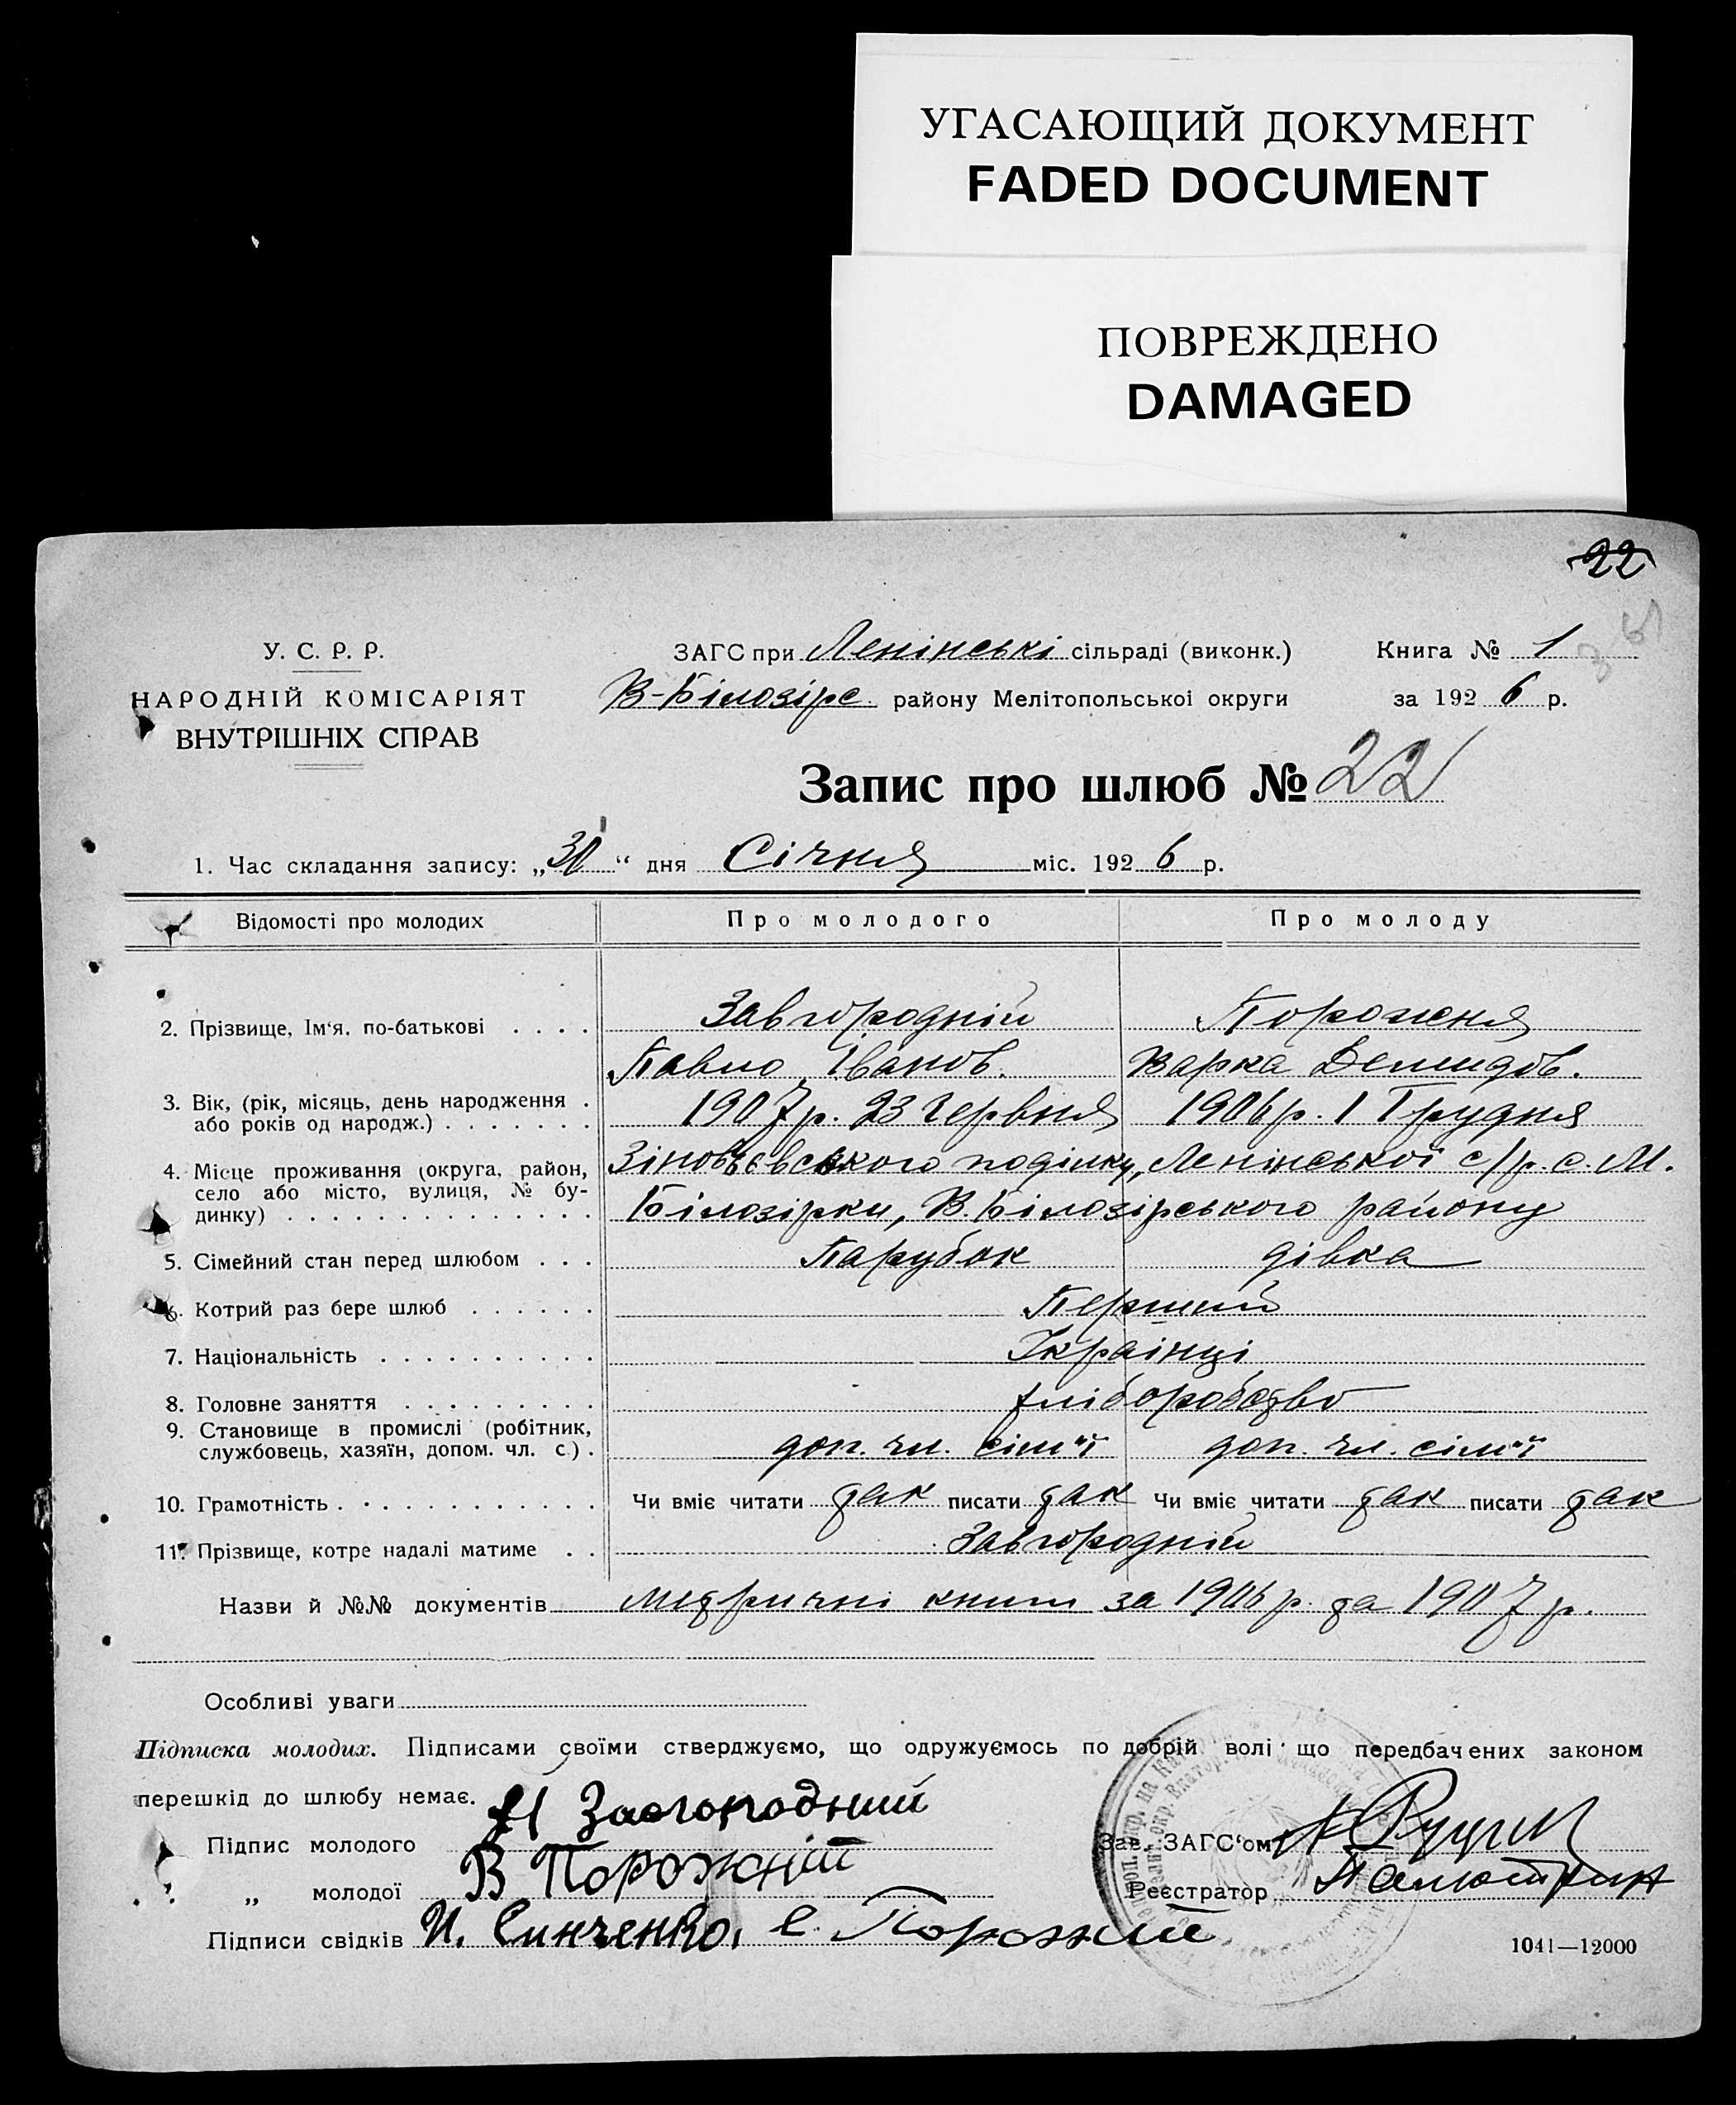 УГАСАЮЩИЙ ДОКУМЕНТ
FADED DOCUMENT
ПОВРЕЖДЕНО
DAMAGED
22
У. С. Р. Р.
НАРОДНІЙ КОМІСАРІЯТ
ВНУТРІШНІХ СПРАВ
ЗАГС при Ленінські сільраді (виконк.)
В-Білозірс. району Мелітопольської округи
Книга № 1
за 1926 р.
Запис про шлюб № 22
1. Час складання запису: „30“ дня Січня міс. 1926 р.
Відомості про молодих Про молодого Про молоду
2. Прізвище, Ім‘я, по-батькові . . . . Завгородній Порожня
Павло Іванов. Варка Демидов.
3. Вік, (рік, місяць, день народження . 1907 р. 23 Червня 1906 р. 1 Грудня
або років од народж.) . . . . . . .
4. Місце проживання (округа, район, Зінов'євського поділку, Ленінської с/р. с. М.
село або місто, вулиця, № бу-
динку) . . . . . . . . . . . . . . Білозірки, В. Білозірського району
5. Сімейний стан перед шлюбом . . . Парубок дівка
6. Котрий раз бере шлюб . . . . . . Перший
7. Національність . . . . . . . . . . Українці
8. Головне заняття . . . . . . . . . хліборобство
9. Становище в промислі (робітник,
службовець, хазяїн, допом. чл. с.) . доп. чл. сім'ї доп. чл. сім'ї
10. Грамотність . . . . . . . . . . . . Чи вміє читати так писати так Чи вміє читати так писати так
11. Прізвище, котре надалі матиме . . Завгородній
Назви й №№ документів метричні книги за 1906 р. та 1907 р.
Особливі уваги
Підписка молодих. Підписами своїми стверджуємо, що одружуємось по добрій волі що передбачених законом
перешкід до шлюбу немає.
Підпис молодого П Завгородний
„ молодої В Порожній
Підписи свідків И. Синченко, С. Порожний
Зав. ЗАГС‘ом
Реєстратор
1041—12000